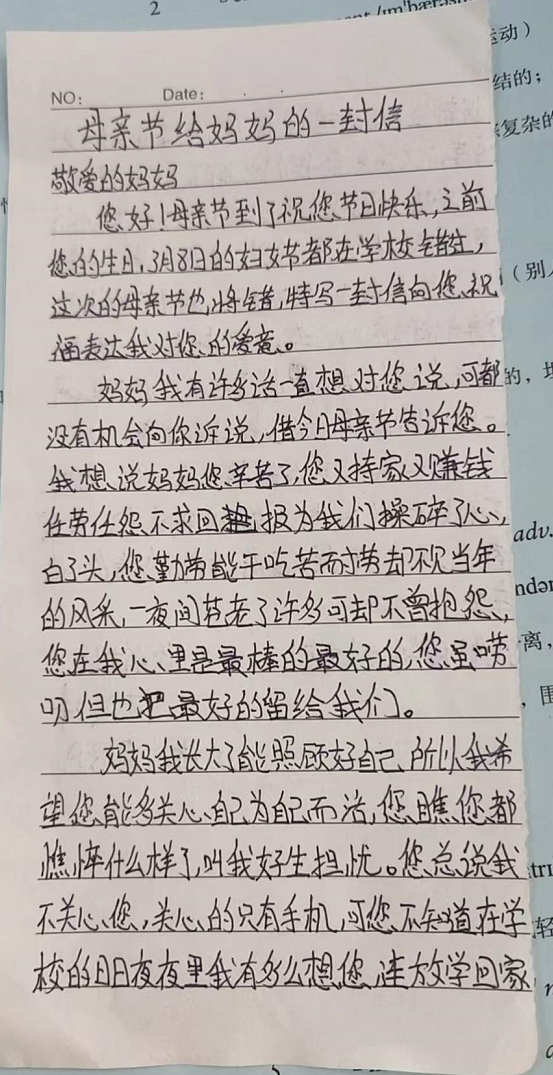 2
运动）
结的；
NO: Date:
复杂的
母亲节给妈妈的一封信
敬爱的妈妈
您好！母亲节到了祝您节日快乐，之前
您的生日，3月8日的妇女节都在学校错过，
（别人
这次的母亲节也将错，特写一封信向您祝
福表达我对您的爱意。
妈妈我有许多话一直想对您说，可都
的，
没有机会向你诉说，借今日母亲节告诉您。
我想说妈妈您辛苦了，您又持家又赚钱
任劳任怨不求回报为我们操碎了心，
adv.
白了头，您勤劳能干吃苦耐劳却不见当年
的风采，一夜间苍老了许多可却不曾抱怨，
离，
您在我心里是最棒的最好的，您虽唠
叨但也把最好的留给我们。
妈妈我长大了能照顾好自己 所以我希
望您能多关心自己为自己而活，您瞧您都
憔悴什么样了，叫我好生担忧。您总说我
不关心您，关心的只有手机，可您不知道在学
校的日日夜夜里我有多么想您，连放学回家